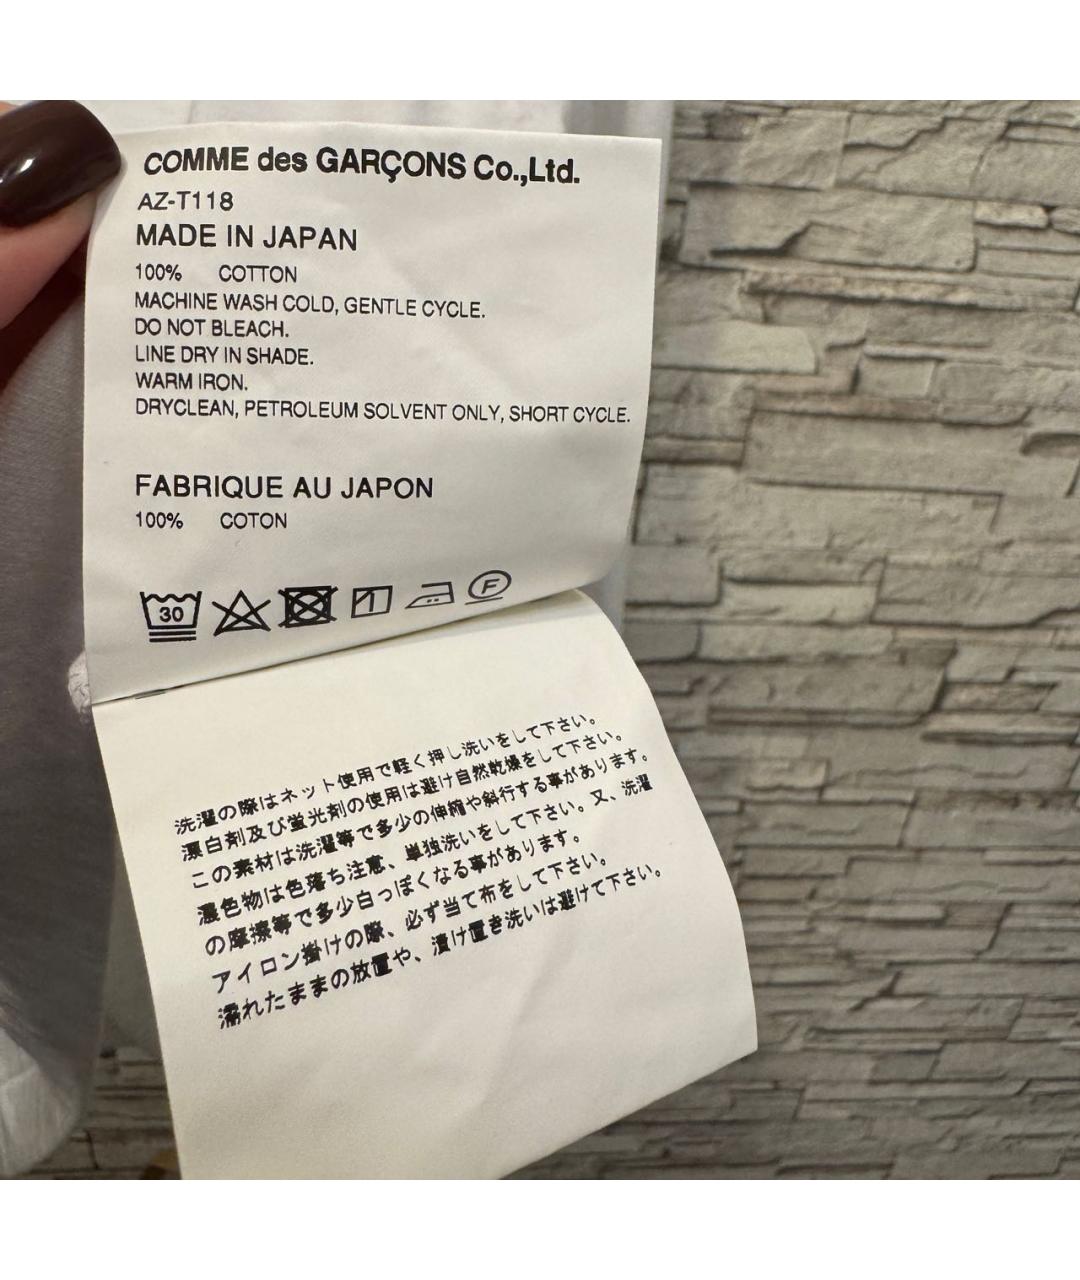 COMME des GARÇONS Co.,Ltd.
AZ-T118
MADE IN JAPAN
100% COTTON
MACHINE WASH COLD, GENTLE CYCLE.
DO NOT BLEACH.
LINE DRY IN SHADE.
WARM IRON.
DRYCLEAN, PETROLEUM SOLVENT ONLY, SHORT CYCLE.
FABRIQUE AU JAPON
100% COTON
30 F
洗濯の際はネット使用で軽く押し洗いをして下さい。
漂白剤及び蛍光剤の使用は避け自然乾燥をして下さい。
この素材は洗濯等で多少の伸縮や斜行する事があります。
濃色物は色落ち注意、単独洗いをして下さい。又、洗濯
の摩擦等で多少白っぽくなる事があります。
アイロン掛けの際、必ず当て布をして下さい。
濡れたままの放置や、漬け置き洗いは避けて下さい。